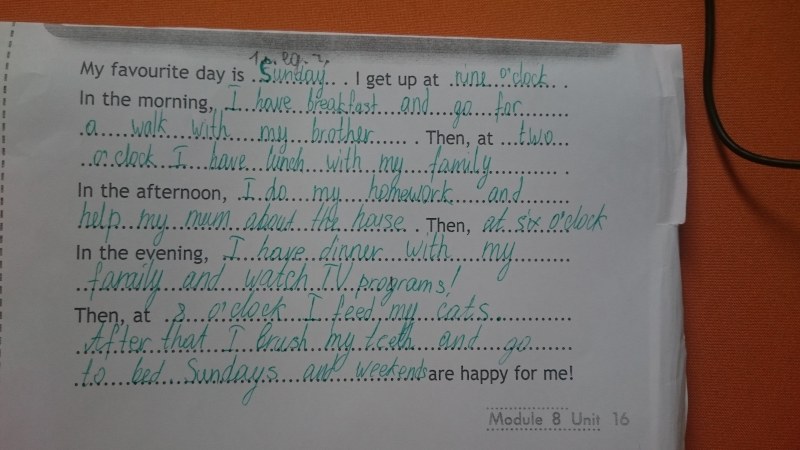 My favourite day is Sunday. I get up at nine o'clock.
In the morning, I have breakfast and go for
a walk with my brother. Then, at two
o'clock I have lunch with my family.
In the afternoon, I do my homework and
help my mum about the house. Then, at six o'clock
In the evening, I have dinner with my
family and watch TV programs!
Then, at 8 o'clock I feed my cats.
After that I brush my teeth and go
to bed. Sundays and weekends are happy for me!
Module 8 Unit 16